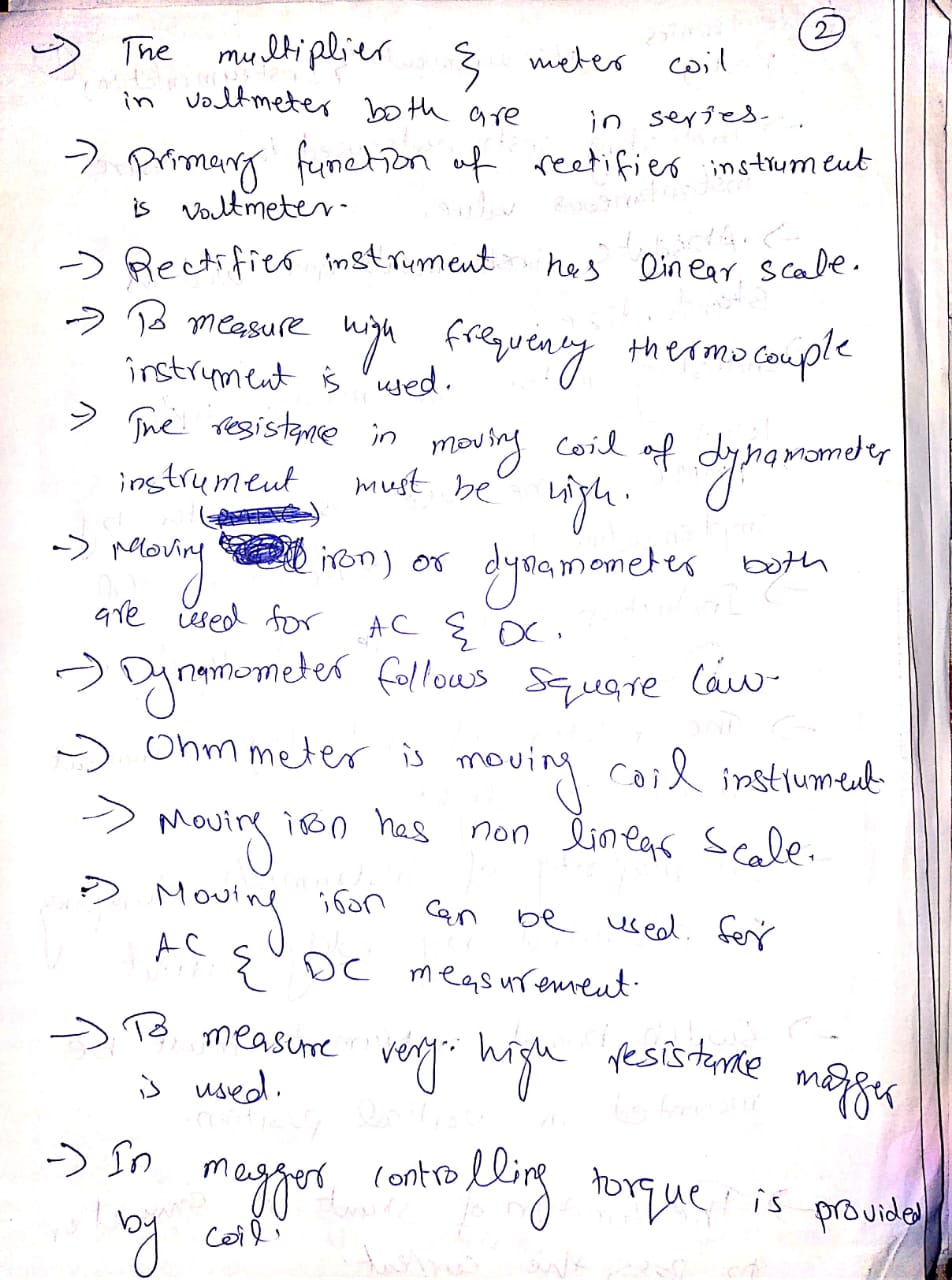 2
→ The multiplier & meter coil
in voltmeter both are in series.
→ Primary function of rectifier instrument
is voltmeter.
→ Rectifier instrument has linear scale.
→ To measure high frequency thermocouple
instrument is used.
→ The resistance in moving coil of dynamometer
instrument must be high.
→ Moving iron) or dynamometer both
are used for AC & DC.
→ Dynamometer follows square law
→ Ohm meter is moving coil instrument
→ Moving iron has non linear scale.
→ Moving iron can be used for
AC & DC measurement.
→ To measure very high resistance magger
is used.
→ In magger controlling torque is provided
by coil.